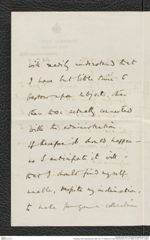 will readily understand that
I have but little time to
bestow upon subjects, other
than those actually connected
with the administration.
If therefore it should happen -
as I anticipate it will -
that I should find myself
unable, despite my inclination,
to make for you a collection